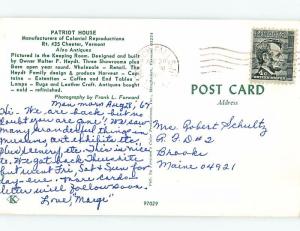 PATRIOT HOUSE
Manufacturers of Colonial Reproductions
Rt. #35 Chester, Vermont
Also Antiques
Pictured is the Keeping Room. Designed and built
by Owner Walter P. Haydt. Three Showrooms plus
Barn open year round. Wholesale - Retail. The
Haydt Family design & produce Harvest - Cap-
tains - Extension - Coffee and End Tables -
Lamps - Rugs and Leather Craft. Antiques bought
sold - refinished.
Photography by Frank L. Forward
Aug 67
Hi - We are back - but no
doubt you are gone! We saw
many wonderful things in
museums, art exhibits etc.
plus scenery, etc. This is nice
too. We got back Thursday
but went Fri, Sat & Sun for
day-eve. More cards -
letter will follow soon.
Love, "Marge"
K
97029
POST CARD
Address
Mrs. Robert Schultz
R.F.D #2
Brooks
Maine 04921